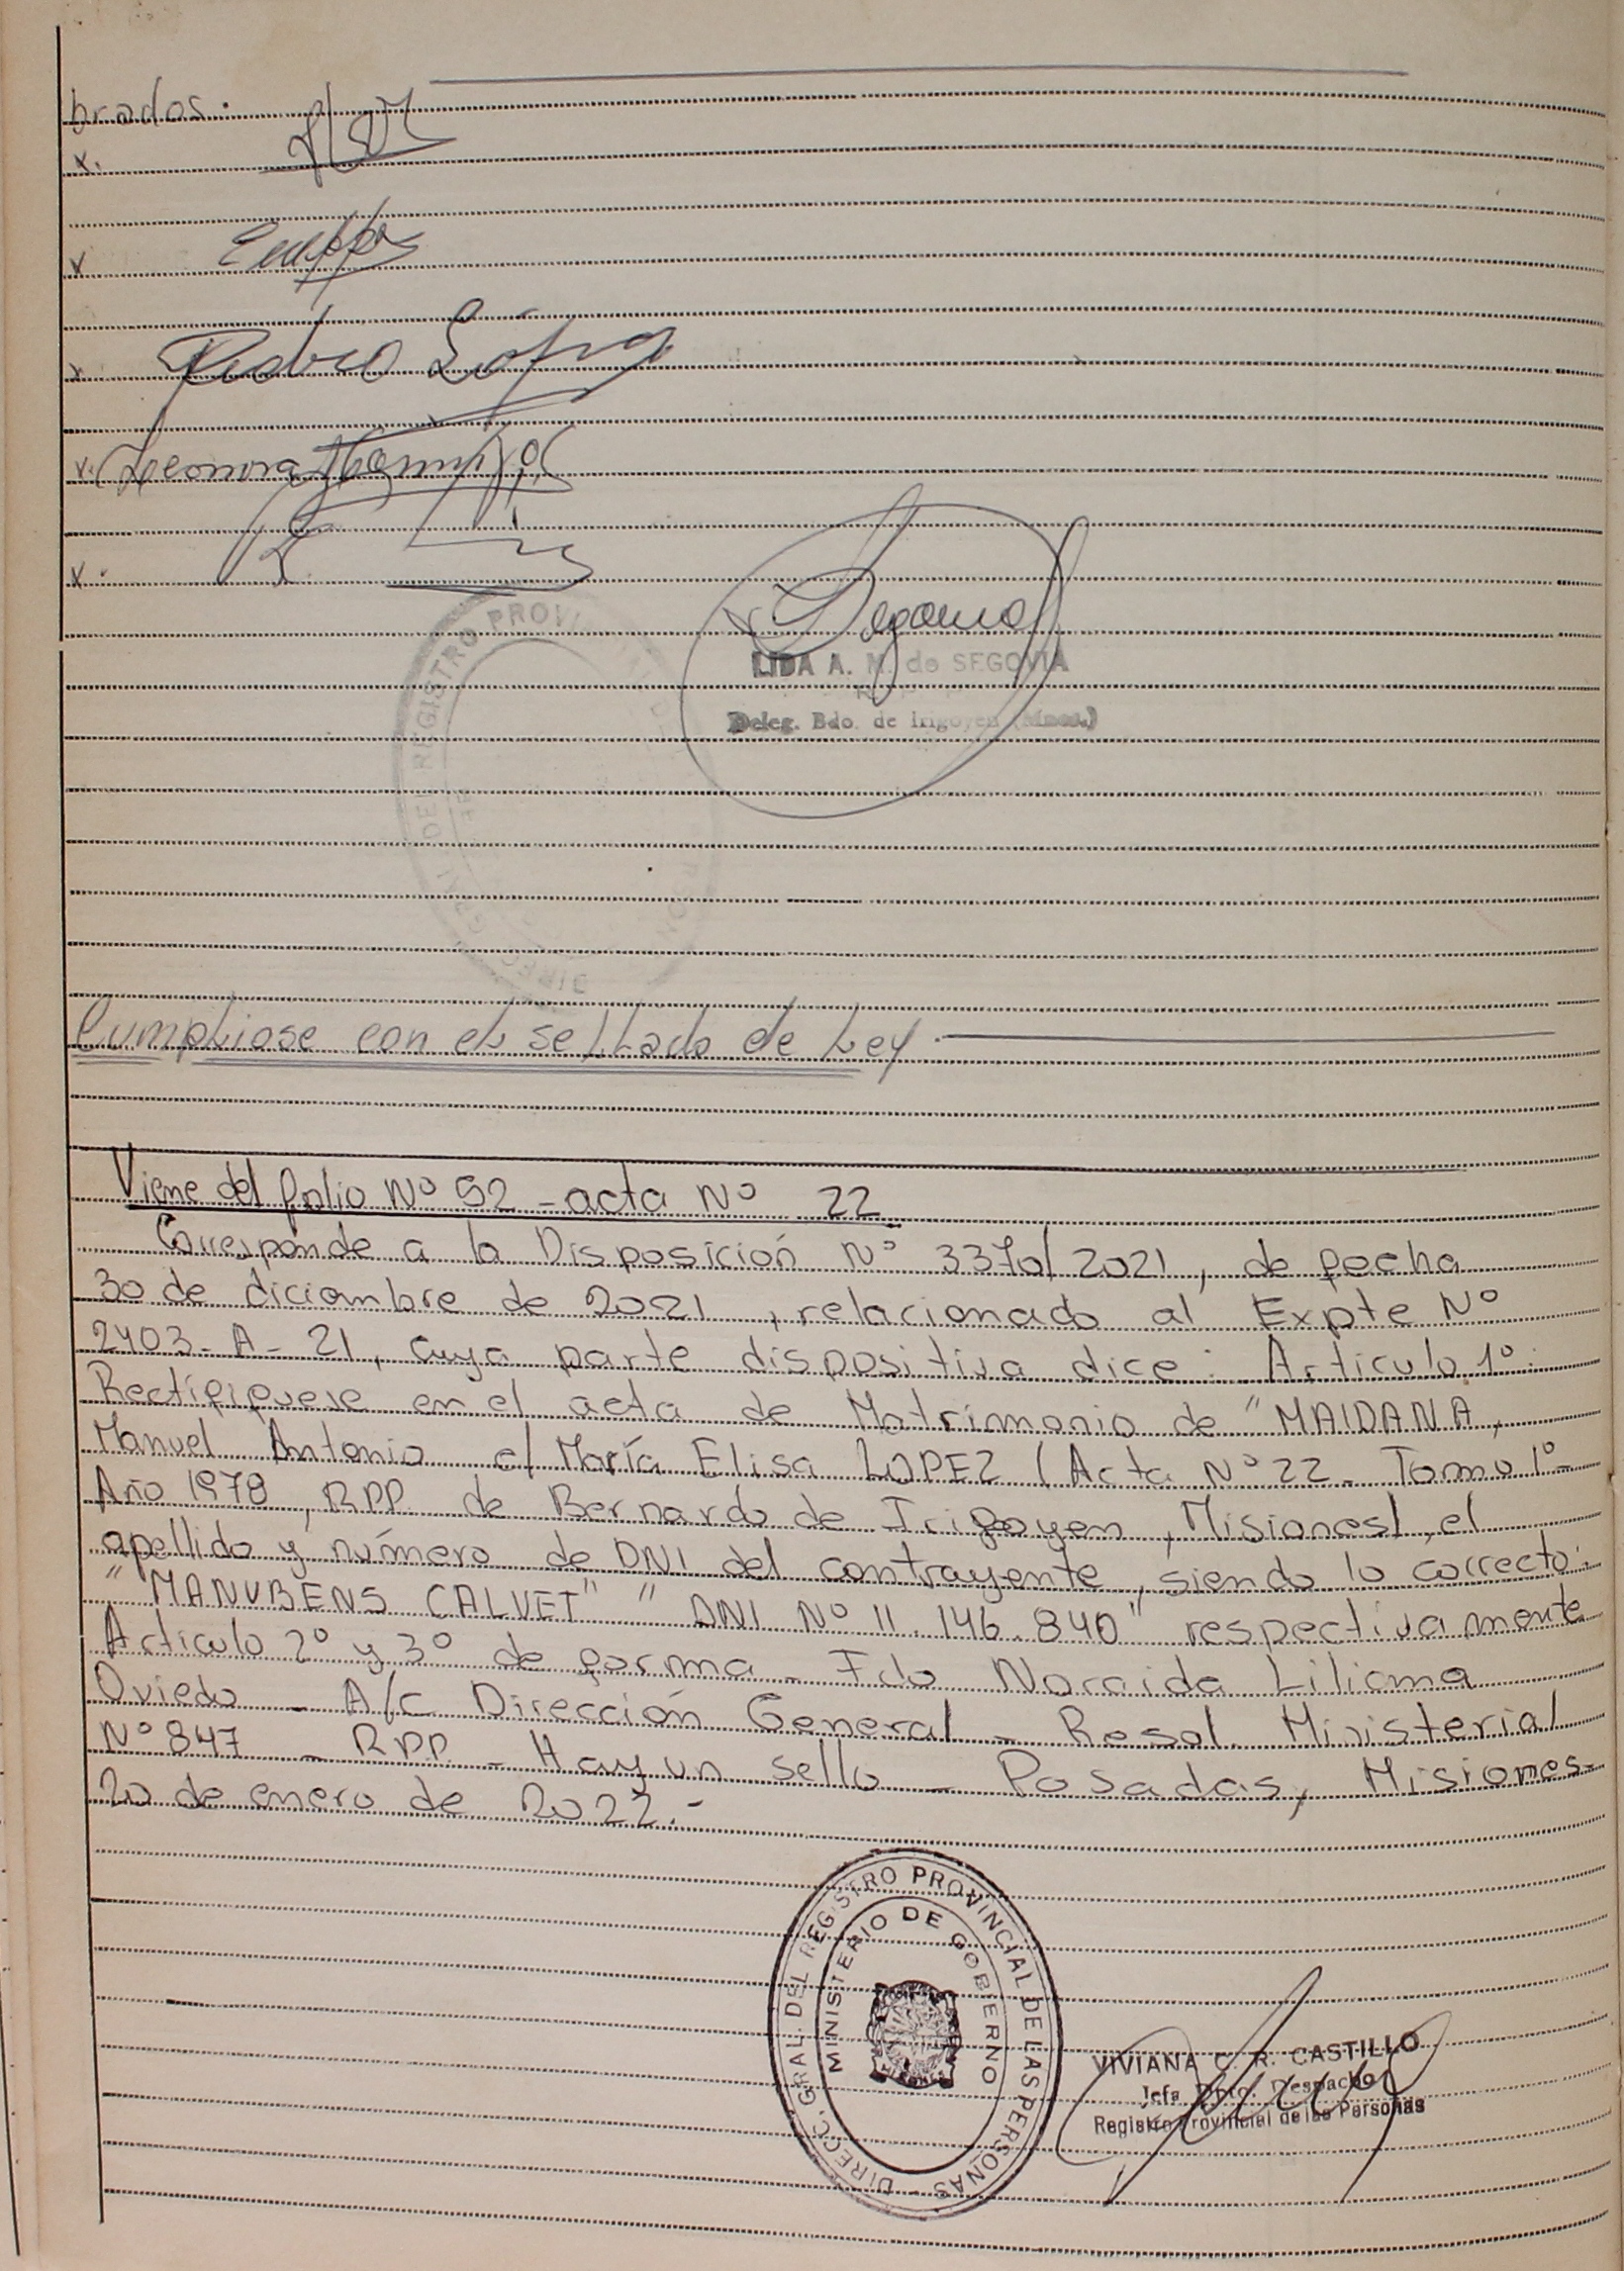 brados.
x.
x
x Pedro
x. Leonora
x.
Segovia
LIDA A. M. de SEGOVIA
Deleg. Bdo. de Irigoyen (Mnes.)
Cumpliose con el sellado de Ley.
Viene del folio Nº 92 - acta Nº 22
Corresponde a la Disposición Nº 3370/2021, de fecha
30 de diciembre de 2021, relacionado al Expte Nº
2403-A-21, cuya parte dispositiva dice: Artículo 1º:
Rectifíquese en el acta de Matrimonio de "MAIDANA,
Manuel Antonio c/ María Elisa LOPEZ (Acta Nº 22 - Tomo 1º -
Año 1978, RPP. de Bernardo de Irigoyen, Misiones), el
apellido y número de DNI del contrayente, siendo lo correcto:
"MANUBENS CALVET" "DNI Nº 11.146.840" respectivamente
Artículo 2º y 3º de forma - Fdo Noraida Liliana
Oviedo - A/C Dirección General - Resol. Ministerial
Nº 847 - RPP - Hay un sello - Posadas, Misiones-
20 de enero de 2022.-
DIRECC. GRAL. DEL REGISTRO PROVINCIAL DE LAS PERSONAS
MINISTERIO DE GOBIERNO
VIVIANA C. R. CASTILLO
Jefa Dpto. Despacho
Registro Provincial de las Personas